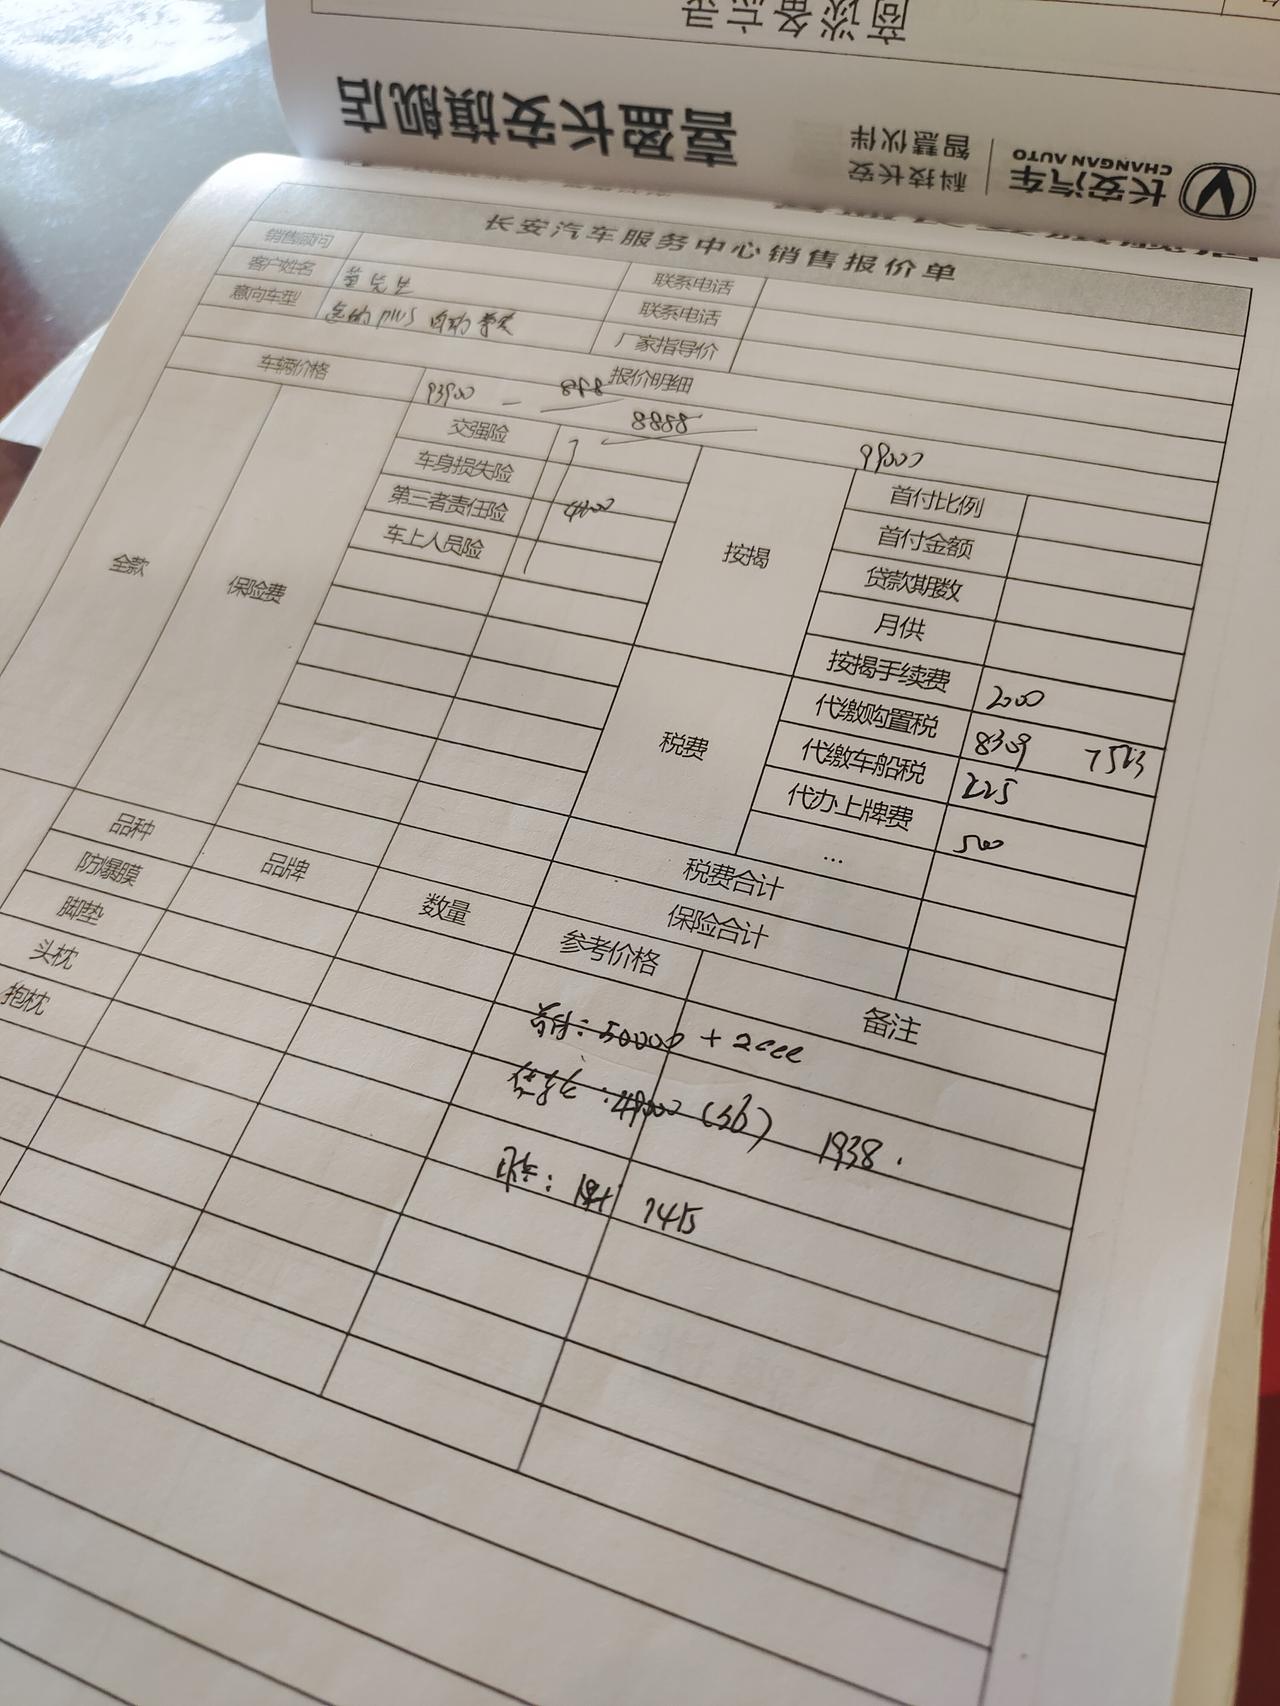 商谈备忘录
喜盈长安旗舰店
科技长安
智慧伙伴
长安汽车
CHANGAN AUTO
长安汽车服务中心销售报价单
销售顾问 联系电话
客户姓名 联系电话
意向车型 plus 自动 厂家指导价
报价明细
车辆价格 93900 - 888 8888 99000
全款 保险费 交强险 按揭 首付比例
车身损失险 首付金额
第三者责任险 4800 贷款期数
车上人员险 月供
按揭手续费 2000
税费 代缴购置税 8309 7513
代缴车船税 225
代办上牌费 500
...
税费合计
保险合计
品种 品牌 数量 参考价格 备注
防爆膜
脚垫
头枕
抱枕
首付: 50000 + 2000
49000 (36) 1938.
1415